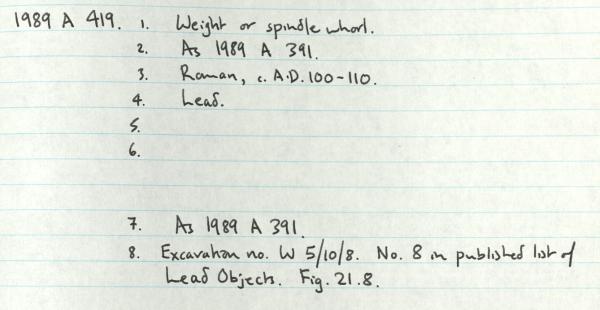 1989 A 419. 1. Weight or spindle whorl.
2. As 1989 A 391.
3. Roman, c. A.D. 100-110.
4. Lead.
5.
6.
7. As 1989 A 391.
8. Excavation no. W 5/10/8. No. 8 in published list of
Lead Objects. Fig. 21.8.